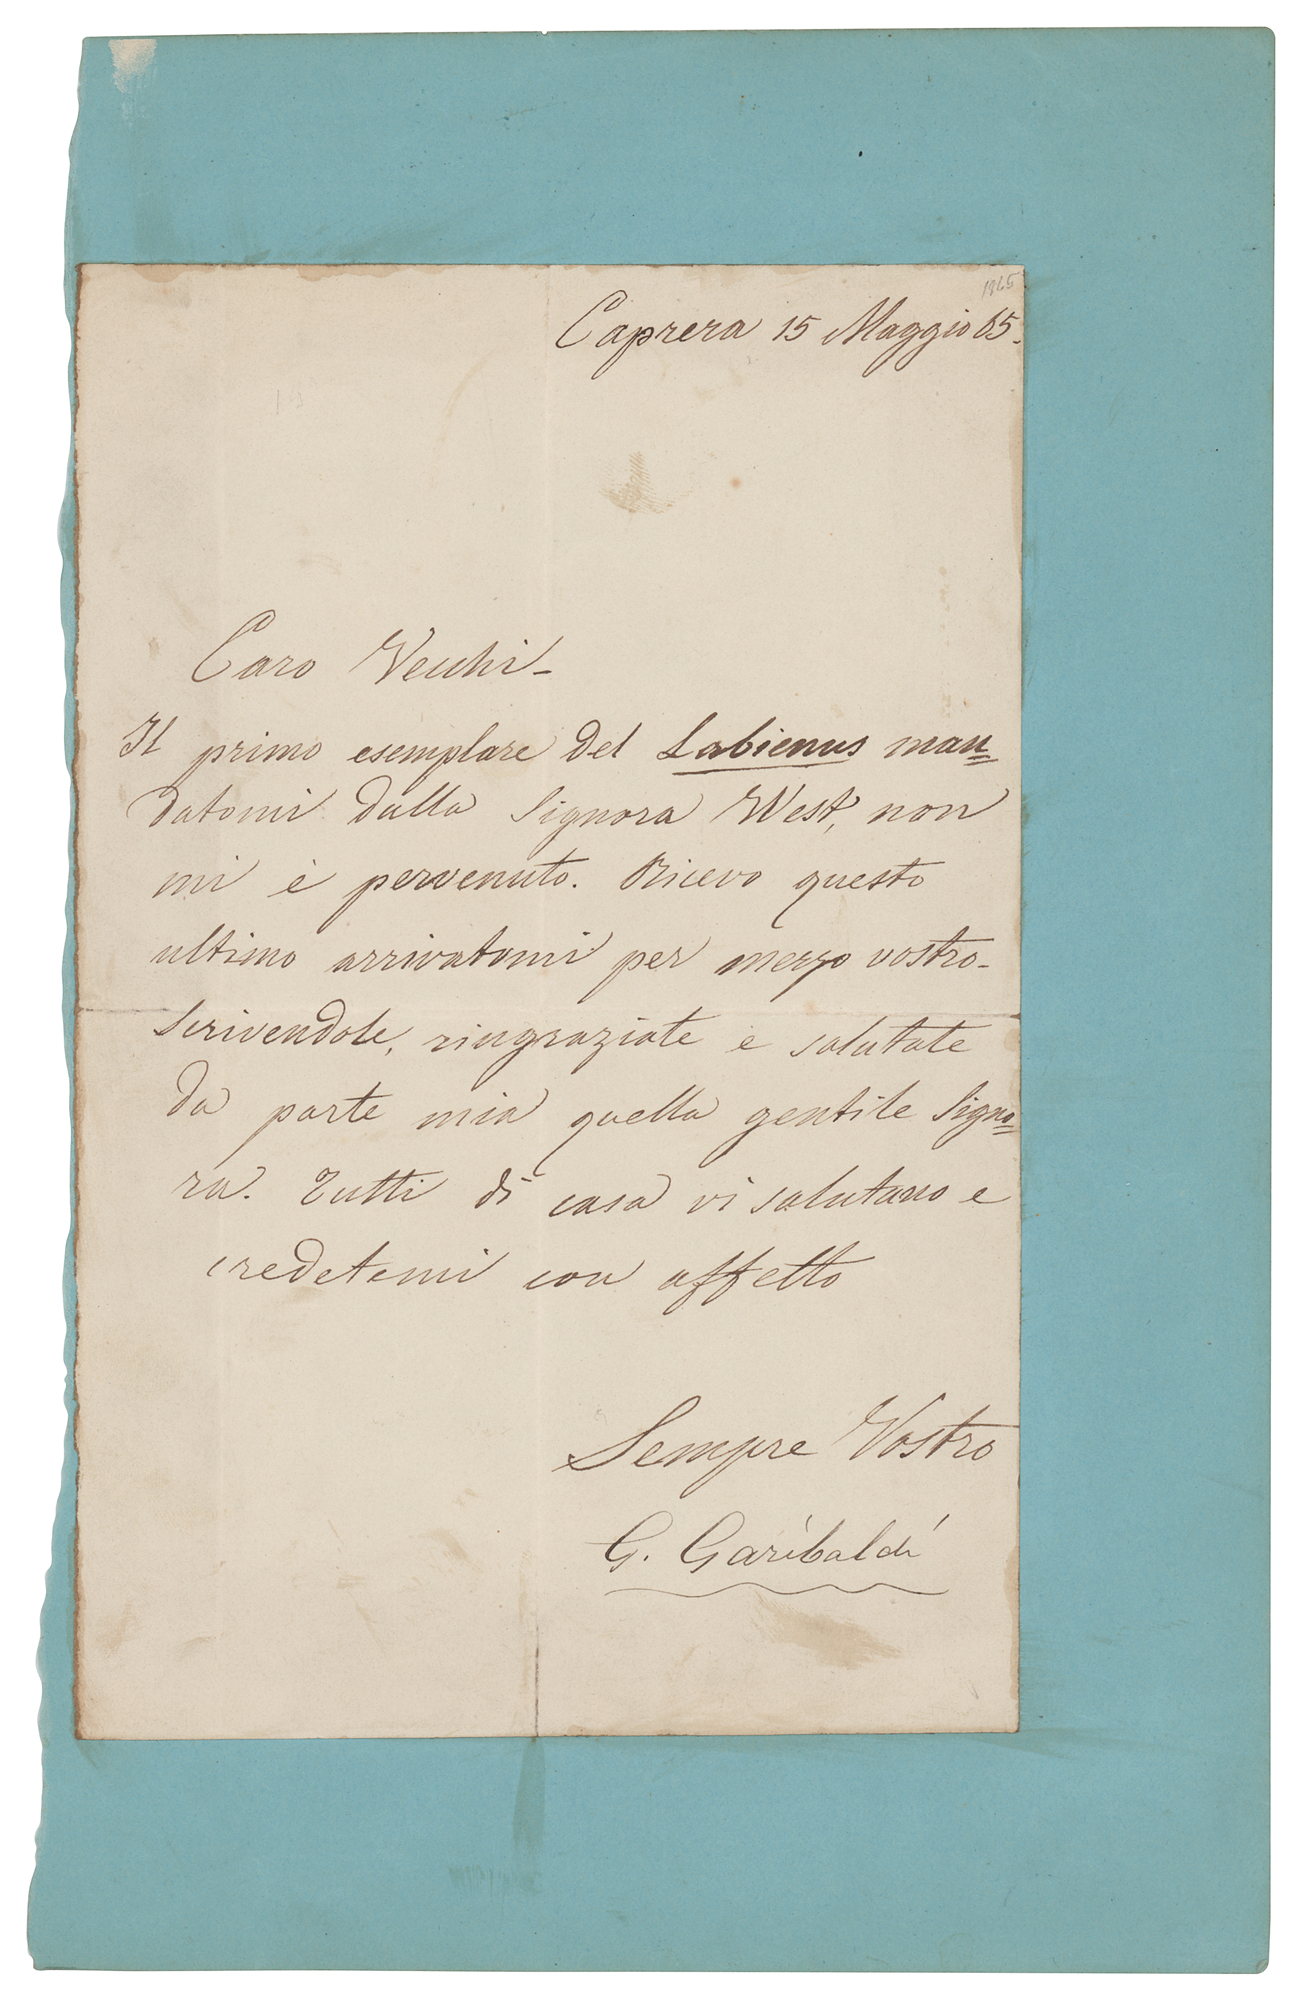 1865
Caprera 15 Maggio 65.
Caro Vecchi -
Il primo esemplare del Labienus man=
datomi dalla Signora West, non
mi è pervenuto. Ricevo questo
ultimo arrivatomi per mezzo vostro -
Scrivendole, ringraziate e salutate
da parte mia quella gentile Signo=
ra. Tutti di casa vi salutano e
credetemi con affetto
Sempre Vostro
G. Garibaldi